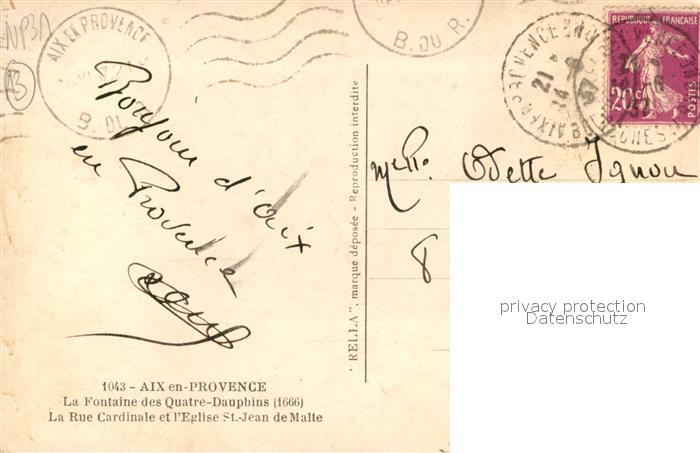 NP3A
AIX EN PROVENCE
B. DU R.
REPUBLIQUE FRANÇAISE
20c
POSTES
21
Bonjour d'Aix
en Provence
Melle Odette Ignou
8
" RELLA ", marque déposée - Reproduction interdite
privacy protection
Datenschutz
1043 - AIX en-PROVENCE
La Fontaine des Quatre-Dauphins (1666)
La Rue Cardinale et l'Eglise St.-Jean de Malte